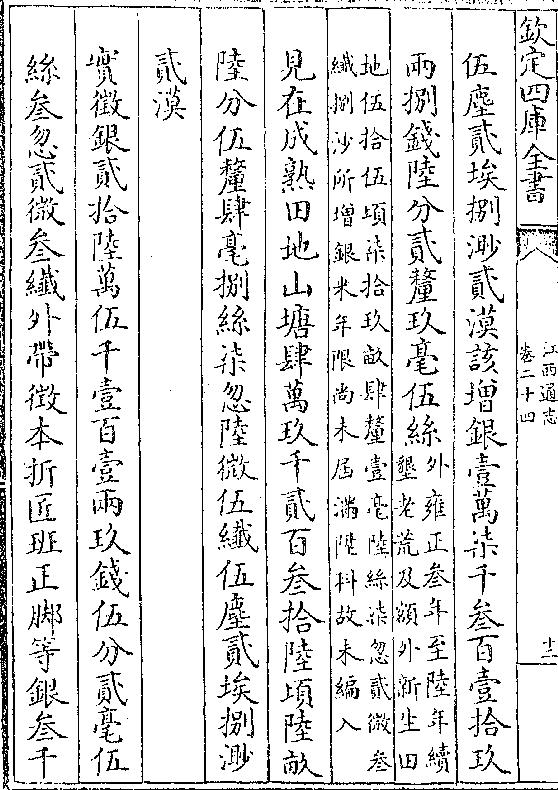 欽定四庫全書
江西通志
卷二十四
十二
伍塵貳埃捌渺貳漠該增銀壹萬柒千叁百壹拾玖
兩捌錢陸分貳釐玖毫伍絲
外雍正叁年至陸年續
墾老荒及額外新生田
地伍拾伍頃柒拾玖畝肆釐壹毫陸絲柒忽貳微叁
纖捌沙所增銀米年限尚未屆滿陞科故未編入
見在成熟田地山塘肆萬玖千貳百叁拾陸頃陸畝
陸分伍釐肆毫捌絲柒忽陸微伍纖伍塵貳埃捌渺
貳漠
實徵銀貳拾陸萬伍千壹百壹兩玖錢伍分貳毫伍
絲叁忽貳微叁纖外帶徵本折匠班正脚等銀叁千